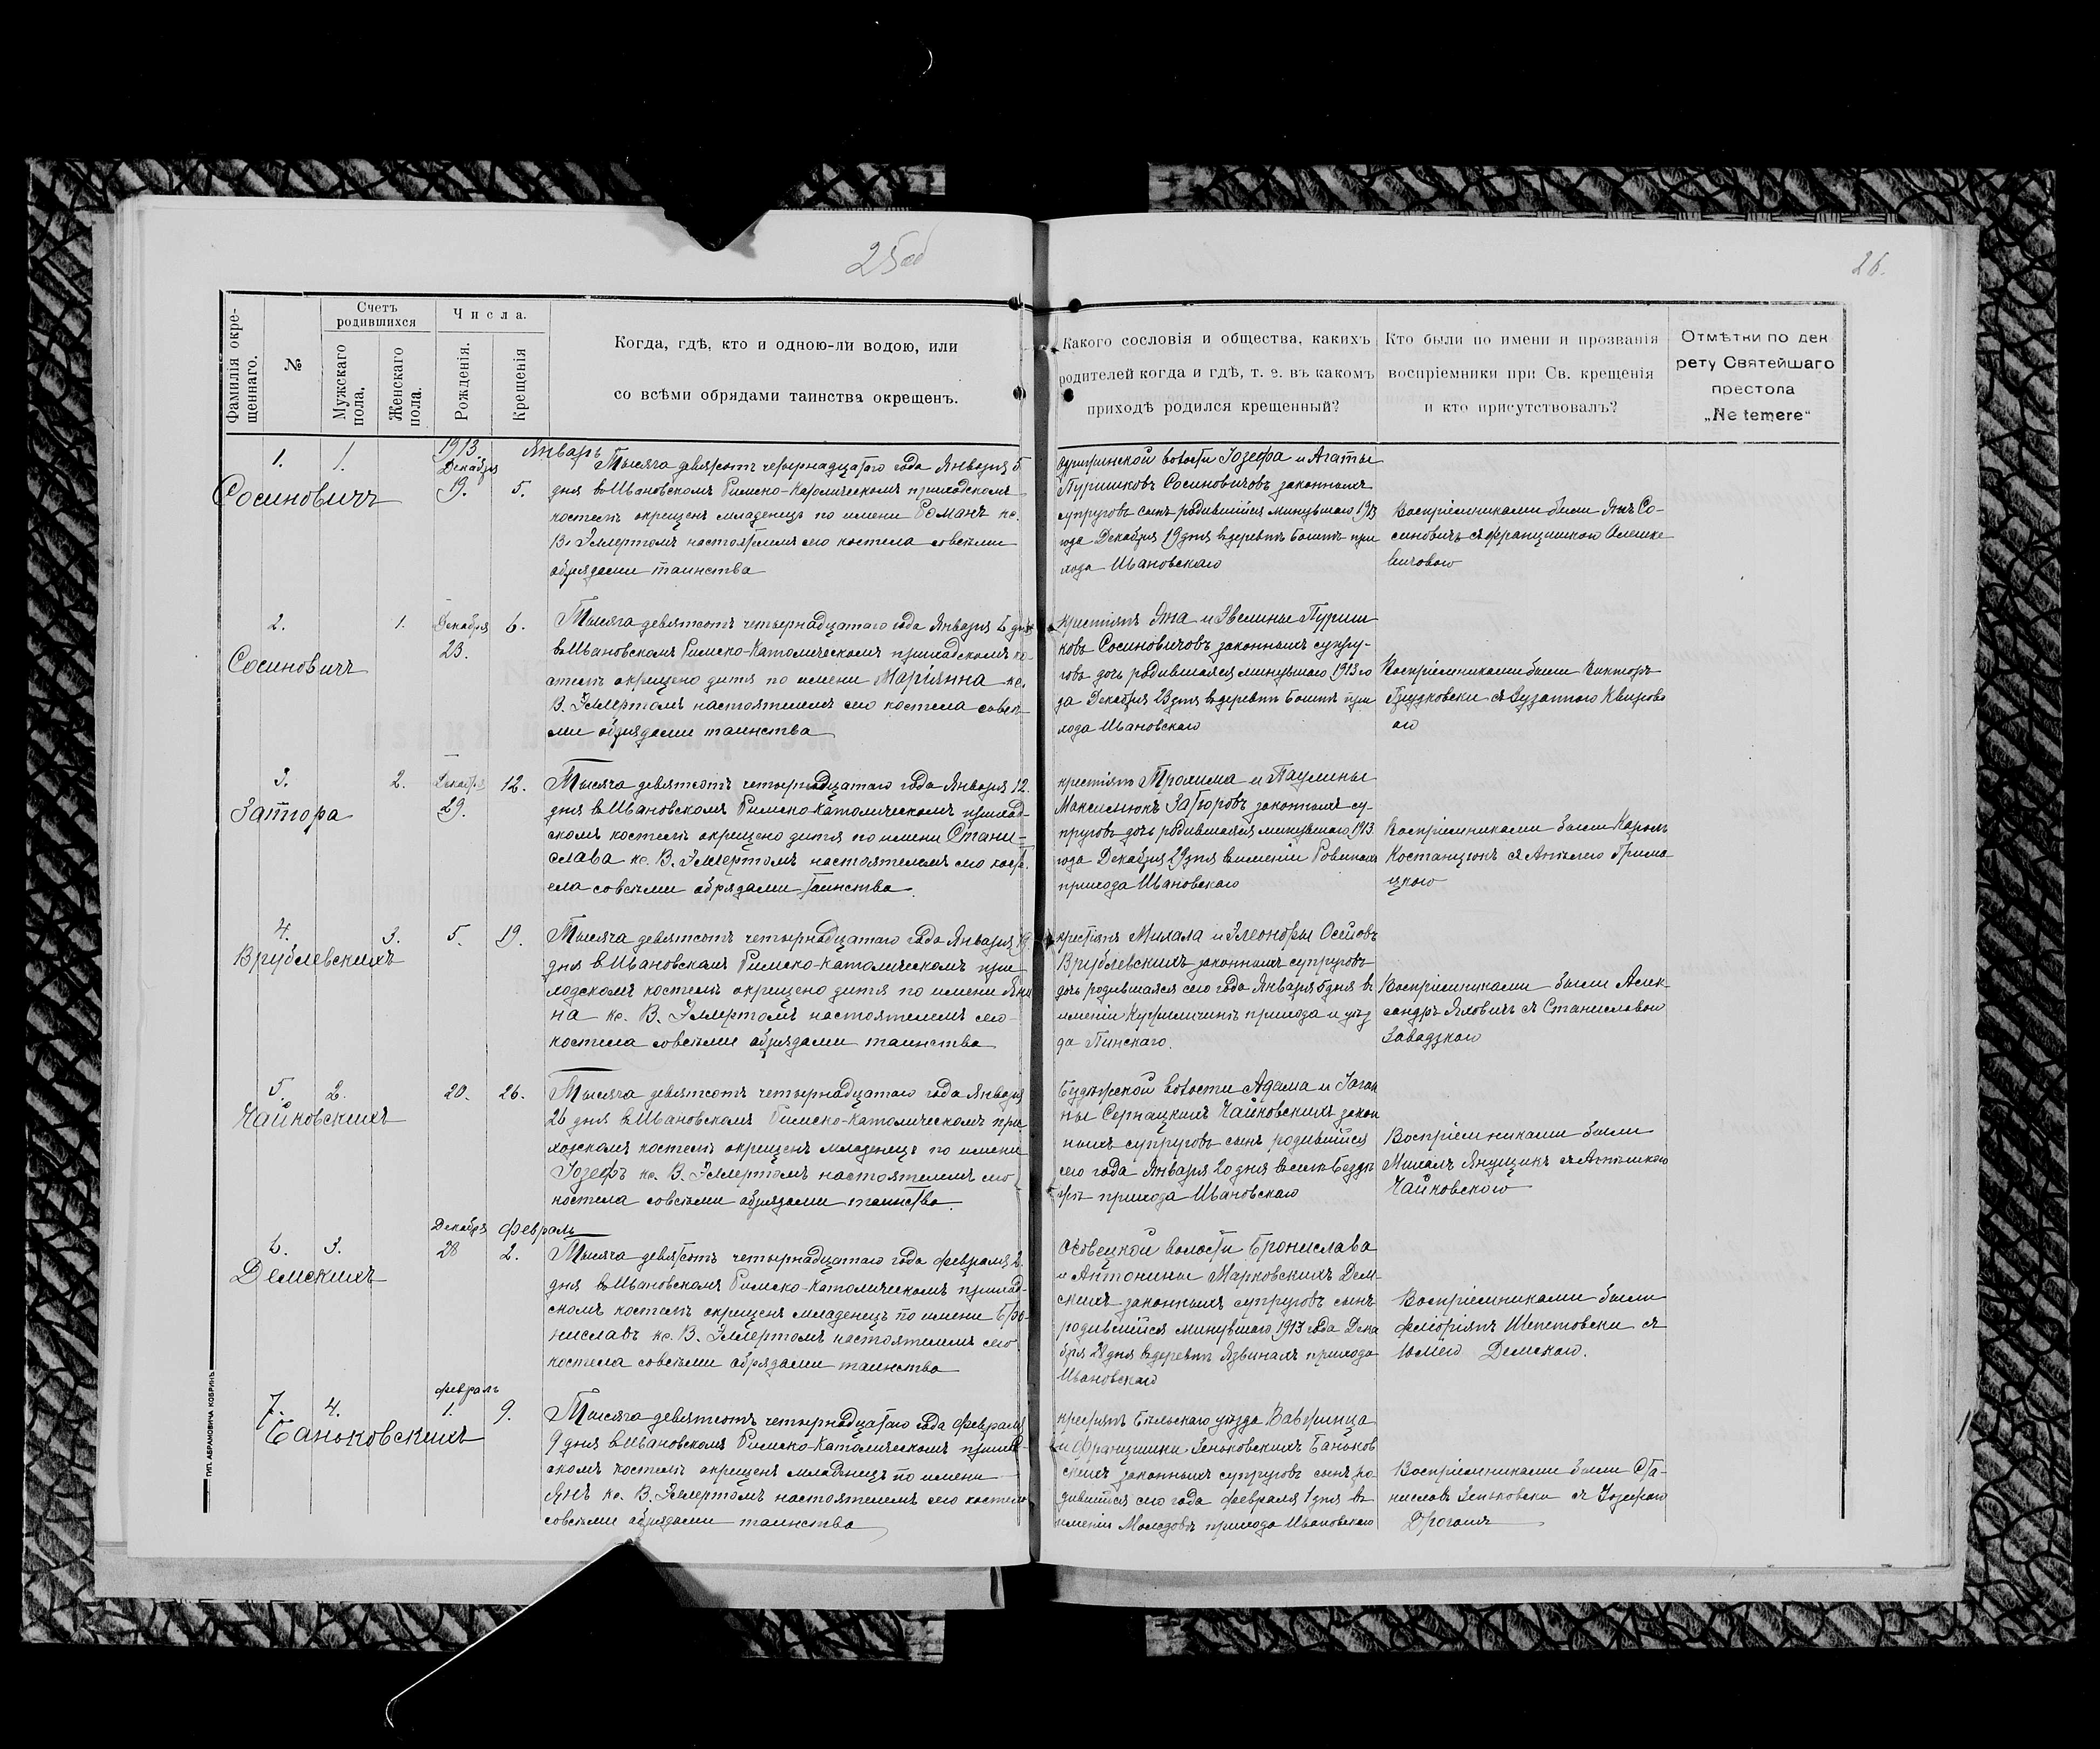 25об
26.
Фамилія окрещеннаго.
№
Счетъ родившихся
Мужскаго пола.
Женскаго пола.
Числа.
Рожденія.
Крещенія
Когда, гдѣ, кто и одною-ли водою, или
со всѣми обрядами таинства окрещенъ.
Какого сословія и общества, какихъ
родителей когда и гдѣ, т. е. въ какомъ
приходѣ родился крещенный?
Кто были по имени и прозванія
воспріемники при Св. крещенія
и кто присутствовалъ?
Отмѣтки по дек
рету Святейшаго
престола
„Ne temere“
1. 1. 1913 Декабря 19. Январь 5.
Сосиновичъ
Тысяча девятсотъ четырнадцатого года Января 5
дня в Ивановскомъ Римско-Католическомъ приходскомъ
костелѣ окрещенъ младенецъ по имени Романъ кс.
В. Эллертомъ настоятелемъ сего костела со всѣми
обрядами таинства
волости Іозефа и Агаты
Пуришковъ Сосиновичовъ законныхъ
супруговъ сынъ родившійся минувшаго 1913
года Декабря 19 дня в деревнѣ при
хода Ивановскаго
Воспріемниками были Янъ Со-
синовичъ съ Францишкою Олешке
вичовою
2. 1. Декабря 23. 6.
Сосиновичъ
Тысяча девятсотъ четырнадцатаго года Января 6 дня
в Ивановскомъ Римско-Католическомъ приходскомъ ко-
стелѣ окрещено дитя по имени Маріянна кс.
В. Эллертомъ настоятелемъ сего костела со всѣ-
ми обрядами таинства
крестіянъ Яна и Эвелины Пуриш
ковъ Сосиновичовъ законныхъ супру-
говъ дочь родившаяся минувшаго 1913 го
да Декабря 23 дня в деревнѣ при
хода Ивановскаго
Воспріемниками были Викторъ
съ Зузанною
ою
3. 2. Декабря 29. 12.
Затора
Тысяча девятсотъ четырнадцатаго года Января 12.
дня в Ивановскомъ Римско-Католическомъ приход-
скомъ костелѣ окрещено дитя по имени Стани-
слава кс. В. Эллертомъ настоятелемъ сего кост
ела со всѣми обрядами таинства.
крестіянъ Трохима и Паулины
Максимюкъ Заторовъ законныхъ су-
пруговъ дочь родившаяся минувшаго 1913
года Декабря 29 дня в имѣніи
прихода Ивановскаго
Воспріемниками были Кароль
Костанцюкъ съ Анелею Грима-
цкою
4. 3. 5. 19.
Врублевскихъ
Тысяча девятсотъ четырнадцатаго года Января 19.
дня в Ивановскомъ Римско-Католическомъ при
ходскомъ костелѣ окрещено дитя по имени Яни
на кс. В. Эллертомъ настоятелемъ сего
костела со всѣми обрядами таинства
крестіянъ Михала и Элеоноры Осеповъ
Врублевскихъ законныхъ супруговъ
дочь родившаяся сего года Января 5 дня в
имѣніи прихода и уѣз
да Пинскаго.
Воспріемниками были Алек-
сандръ Яховичъ съ Станиславою
Завадзкою
5. 2. 20. 26.
Чайковскихъ
Тысяча девятсотъ четырнадцатаго года Января
26 дня в Ивановскомъ Римско-Католическомъ при
ходскомъ костелѣ окрещенъ младенецъ по имени
Іозефъ кс. В. Эллертомъ настоятелемъ сего
костела со всѣми обрядами таинства.
волости Адама и Іоган
ны Сернацкихъ Чайковскихъ закон
ныхъ супруговъ сынъ родившійся
сего года Января 20 дня в селѣ Бездѣ
жѣ прихода Ивановскаго
Воспріемниками были
Михалъ Янущикъ съ
Чайковскою
6. 3. Декабря 28 Февраль 2.
Демскихъ
Тысяча девятсотъ четырнадцатаго года февраля 2.
дня в Ивановскомъ Римско-Католическомъ приход-
скомъ костелѣ окрещенъ младенецъ по имени Бро-
ниславъ кс. В. Эллертомъ настоятелемъ сего
костела со всѣми обрядами таинства
Осовецкой волости Бронислава
и Антонины Марковскихъ Дем-
скихъ законныхъ супруговъ сынъ
родившійся минувшаго 1913 года Дека
бря 28 дня в деревнѣ Язвинахъ прихода
Ивановскаго
Воспріемниками были
Флоріянъ Шепетовски съ
Юліею Демскою.
7. 4. Февраль 1. 9.
Баньковскихъ
Тысяча девятсотъ четырнадцатаго года февраля
9 дня в Ивановскомъ Римско-Католическомъ приход-
скомъ костелѣ окрещенъ младенецъ по имени
Янъ кс. В. Эллертомъ настоятелемъ сего костела
со всѣми обрядами таинства
крестіянъ Бѣльскаго уѣзда Вавринца
и Францишки Зеньковскихъ Баньков
скихъ законныхъ супруговъ сынъ ро
дившійся сего года февраля 1 дня в
имѣніи Молодовѣ прихода Ивановскаго
Воспріемниками были Ста-
ниславъ Зеньковски съ Юзефою
ТИП. АБРАМОВИЧА КОБРИНЪ